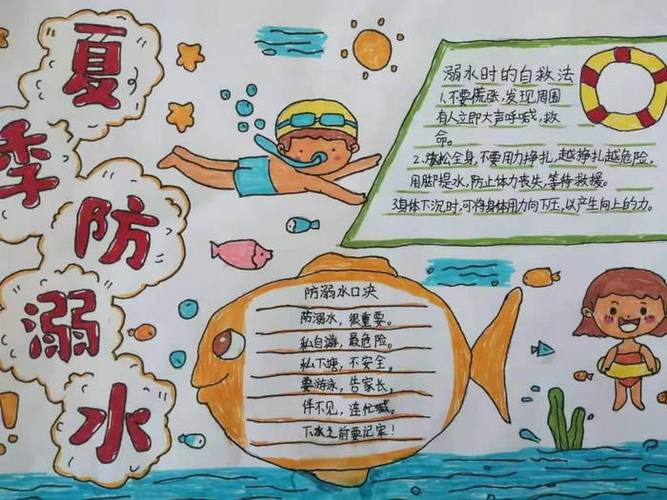 夏
季
防
溺
水
!
溺水时的自救法
1.不要慌涨,发现周围
有人立即大声呼喊,救
命。
2.放松全身,不要用力挣扎,越挣扎越危险,
用脚提水,防止体力丧失,等待救援。
3身体下沉时,可将身体用力向下压,以产生向上的力。
防溺水口决
防溺水,很重要。
私自游,最危险。
私下塘,不安全。
要游泳,告家长,
伴不见,连忙喊。
下水之前要记牢!